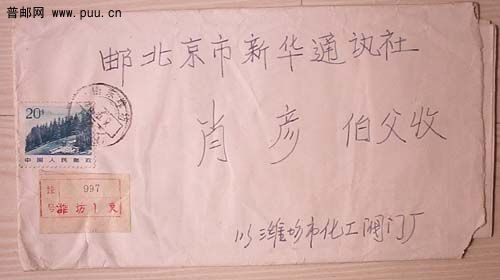 普邮网
www.puu.cn
邮北京市新华通讯社
20分
中国人民邮政
肖彦 伯父收
挂 997
号 潍坊1支
潍坊市化工阀门厂